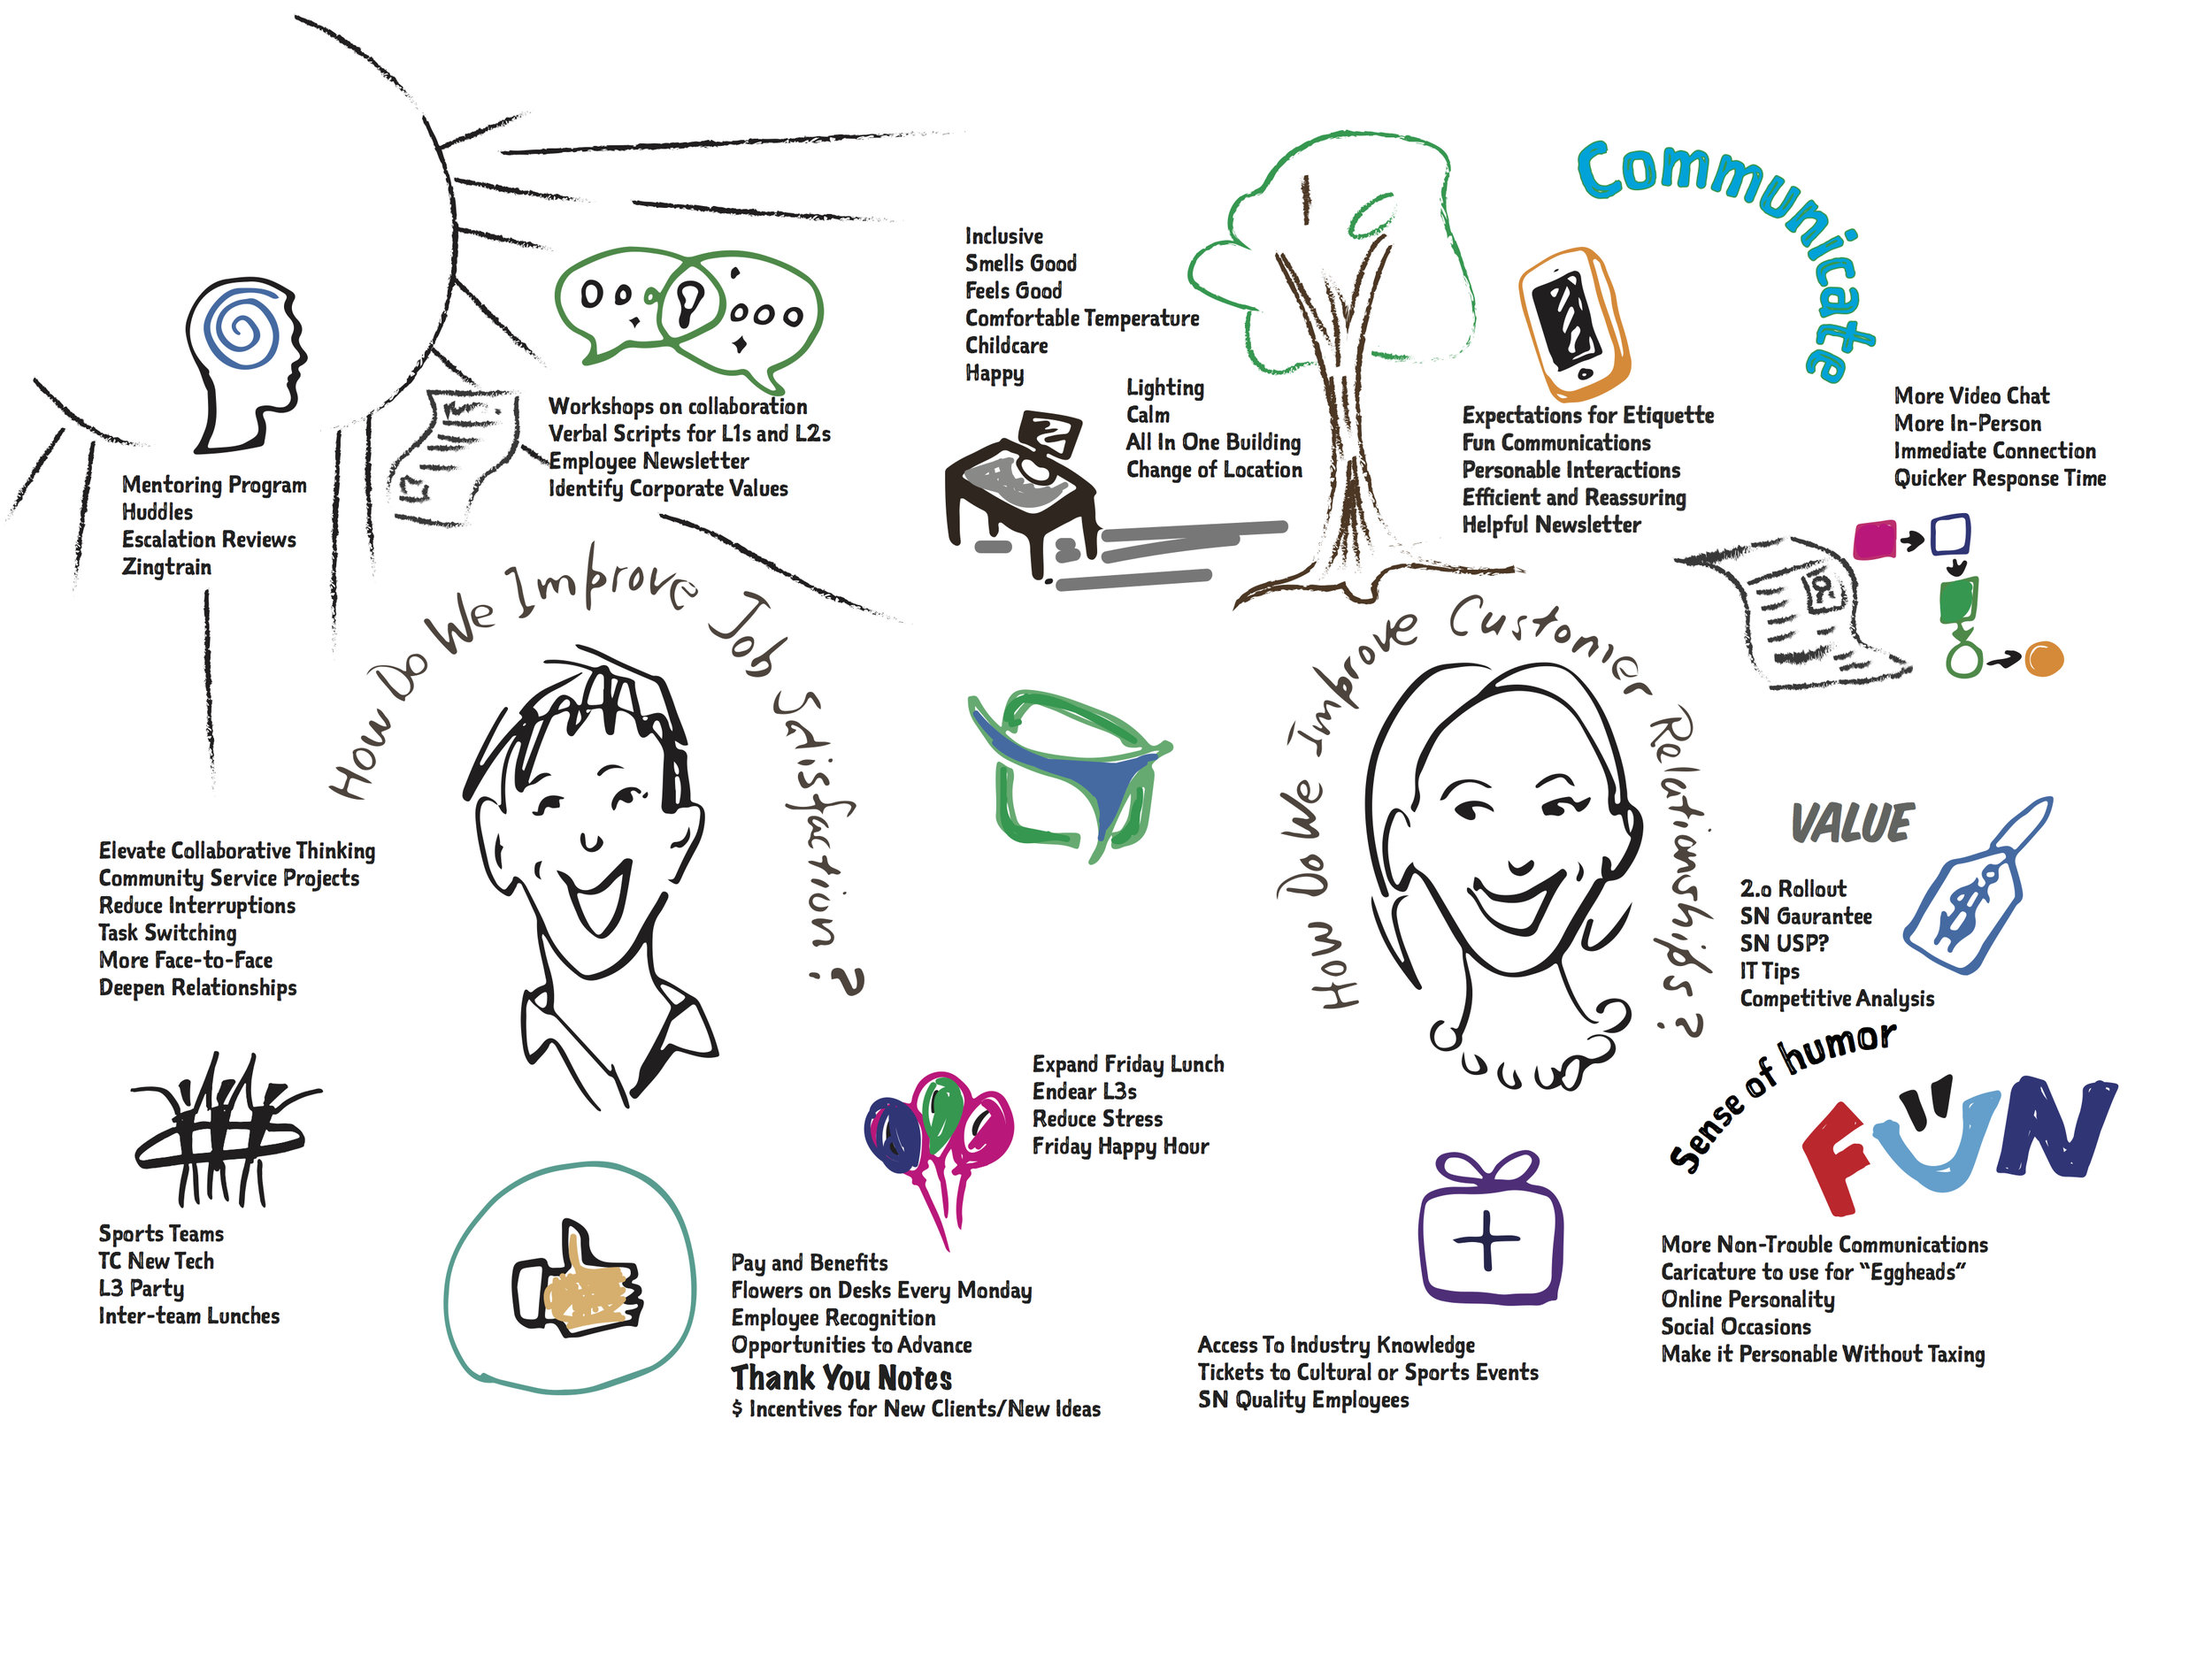 Communicate
Inclusive
Smells Good
Feels Good
Comfortable Temperature
Childcare
Happy
Lighting
Calm
All In One Building
Change of Location
Workshops on collaboration
Verbal Scripts for L1s and L2s
Employee Newsletter
Identify Corporate Values
Mentoring Program
Huddles
Escalation Reviews
Zingtrain
Expectations for Etiquette
Fun Communications
Personable Interactions
Efficient and Reassuring
Helpful Newsletter
More Video Chat
More In-Person
Immediate Connection
Quicker Response Time
How Do We Improve Job Satisfaction?
How Do We Improve Customer Relationships?
Elevate Collaborative Thinking
Community Service Projects
Reduce Interruptions
Task Switching
More Face-to-Face
Deepen Relationships
VALUE
$
2.0 Rollout
SN Gaurantee
SN USP?
IT Tips
Competitive Analysis
Sense of humor
FUN
Expand Friday Lunch
Endear L3s
Reduce Stress
Friday Happy Hour
Sports Teams
TC New Tech
L3 Party
Inter-team Lunches
Pay and Benefits
Flowers on Desks Every Monday
Employee Recognition
Opportunities to Advance
Thank You Notes
$ Incentives for New Clients/New Ideas
Access To Industry Knowledge
Tickets to Cultural or Sports Events
SN Quality Employees
More Non-Trouble Communications
Caricature to use for "Eggheads"
Online Personality
Social Occasions
Make it Personable Without Taxing